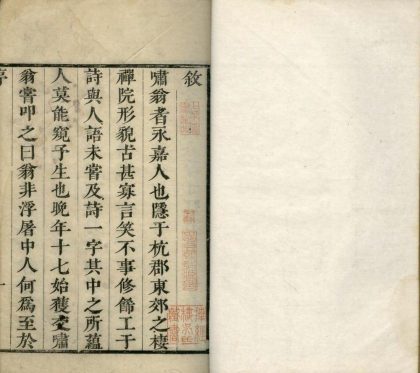 敘
嘯翁者永嘉人也隱于杭郡東郊之棲
禪院形貌古甚寡言笑不事修餙工于
詩與人語未嘗及詩一字其中之所蘊
人莫能窺予生也晚年十七始獲交嘯
翁嘗叩之曰翁非浮屠中人何爲至於